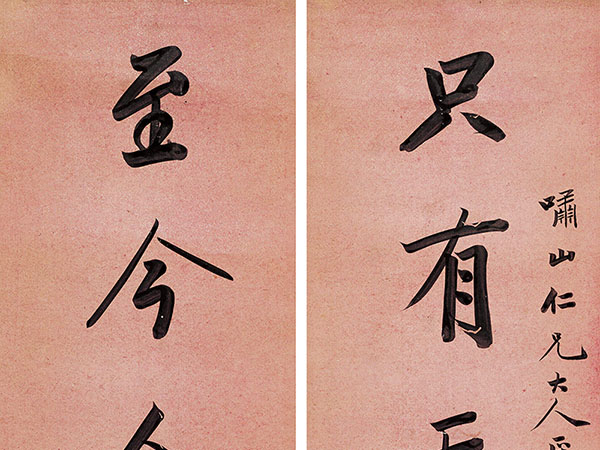 嘯山仁兄大人
只有
至今